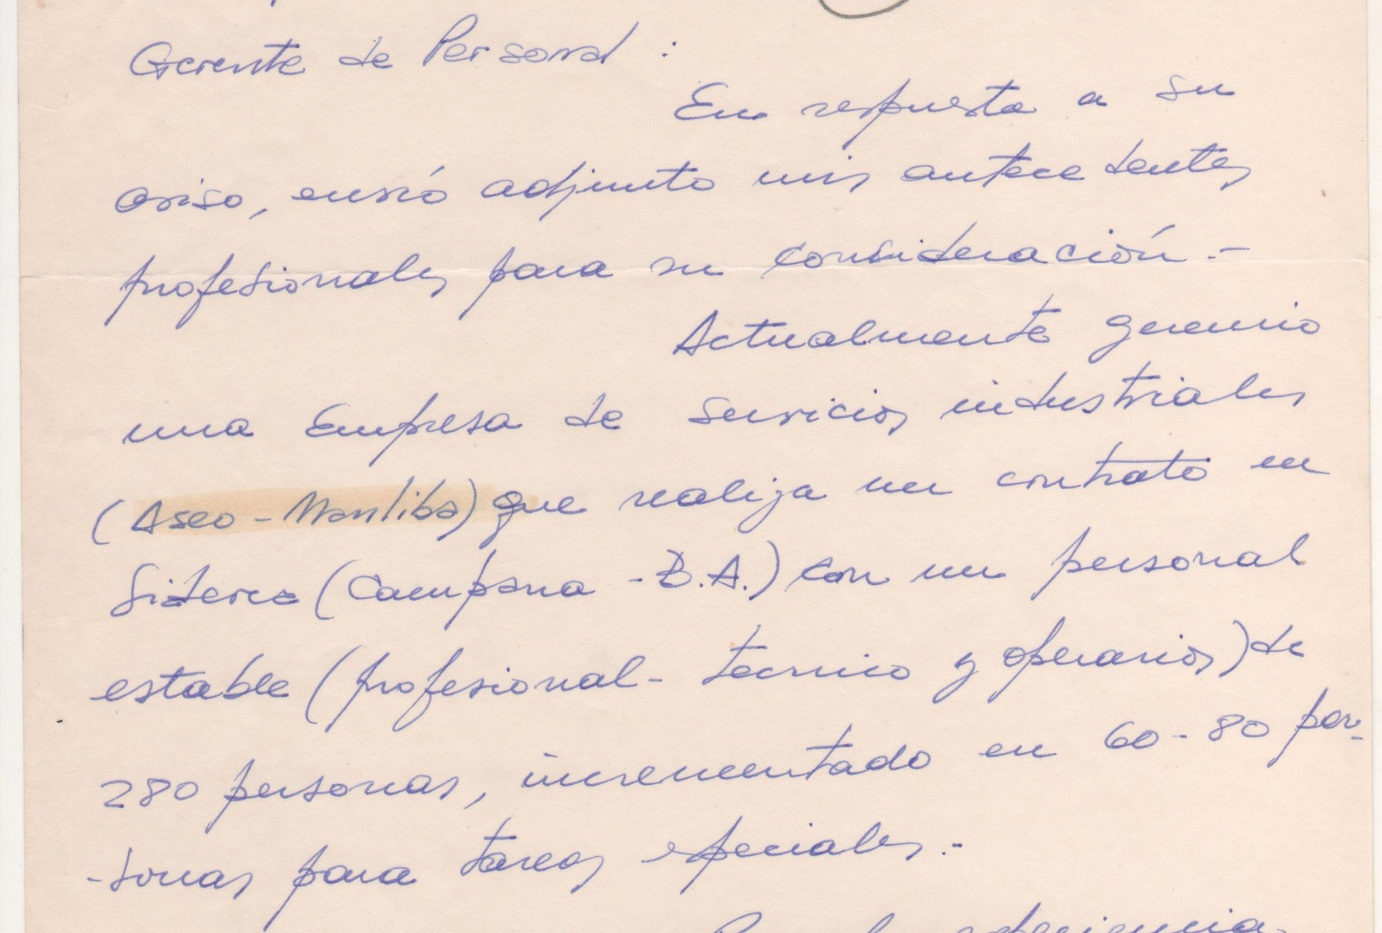 Gerente de Personal :
En respuesta a su
aviso, envió adjunto mis antecedentes
profesionales para su consideración.-
Actualmente gerencio
una Empresa de Servicios industriales
(Aseo - Manliba) que realiza un contrato en
Siderca (Campana - B.A.) con un personal
estable (profesional - tecnico y operarios) de
280 personas, incrementado en 60-80 per-
-sonas para tareas especiales.-